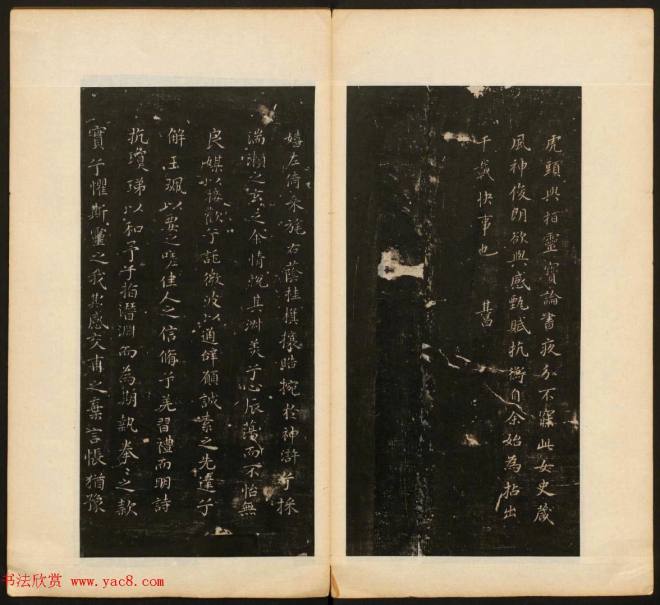 虎頭與桓靈寶論書夜分不寐此女史箴
風神俊朗欲與感甄賦抗衡自余始為拈出
千載快事也 其昌
嬉左倚采旄右蔭桂旗攘皓捥於神滸兮採
湍瀨之玄芝余情悅其淑美兮心振蕩而不怡無
良媒以接歡兮託微波以通辭願誠素之先達兮
解玉珮以要之嗟佳人之信脩兮羌習禮而明詩
抗瓊珶以和予兮指潛淵而為期執拳々之款
實兮懼斯靈之我欺感交甫之棄言悵猶豫
书法欣赏 www.yac8.com